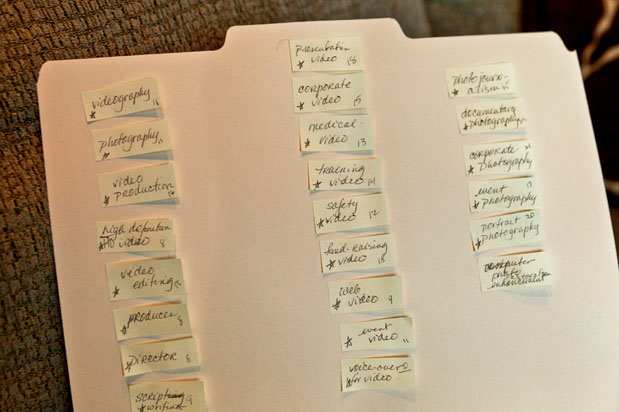 videography
* 11
photography
*
video
* PRODUCTION
high definition
* HD video 8
video
* editing
* producer 8
* DIRECTOR 8
scripting 9
* writing
presentation
* video 13
corporate
* video 15
medical
* video 13
training
* video 14
safety
* video 12
fund-raising
* video 18
web
* video 9
event
* video 11
voice-over
* for video
photojourn-
* alism
documentary
* photography
corporate
* photography
event 17
* photography
portrait 20
* photography
computer
* photo
enhancement